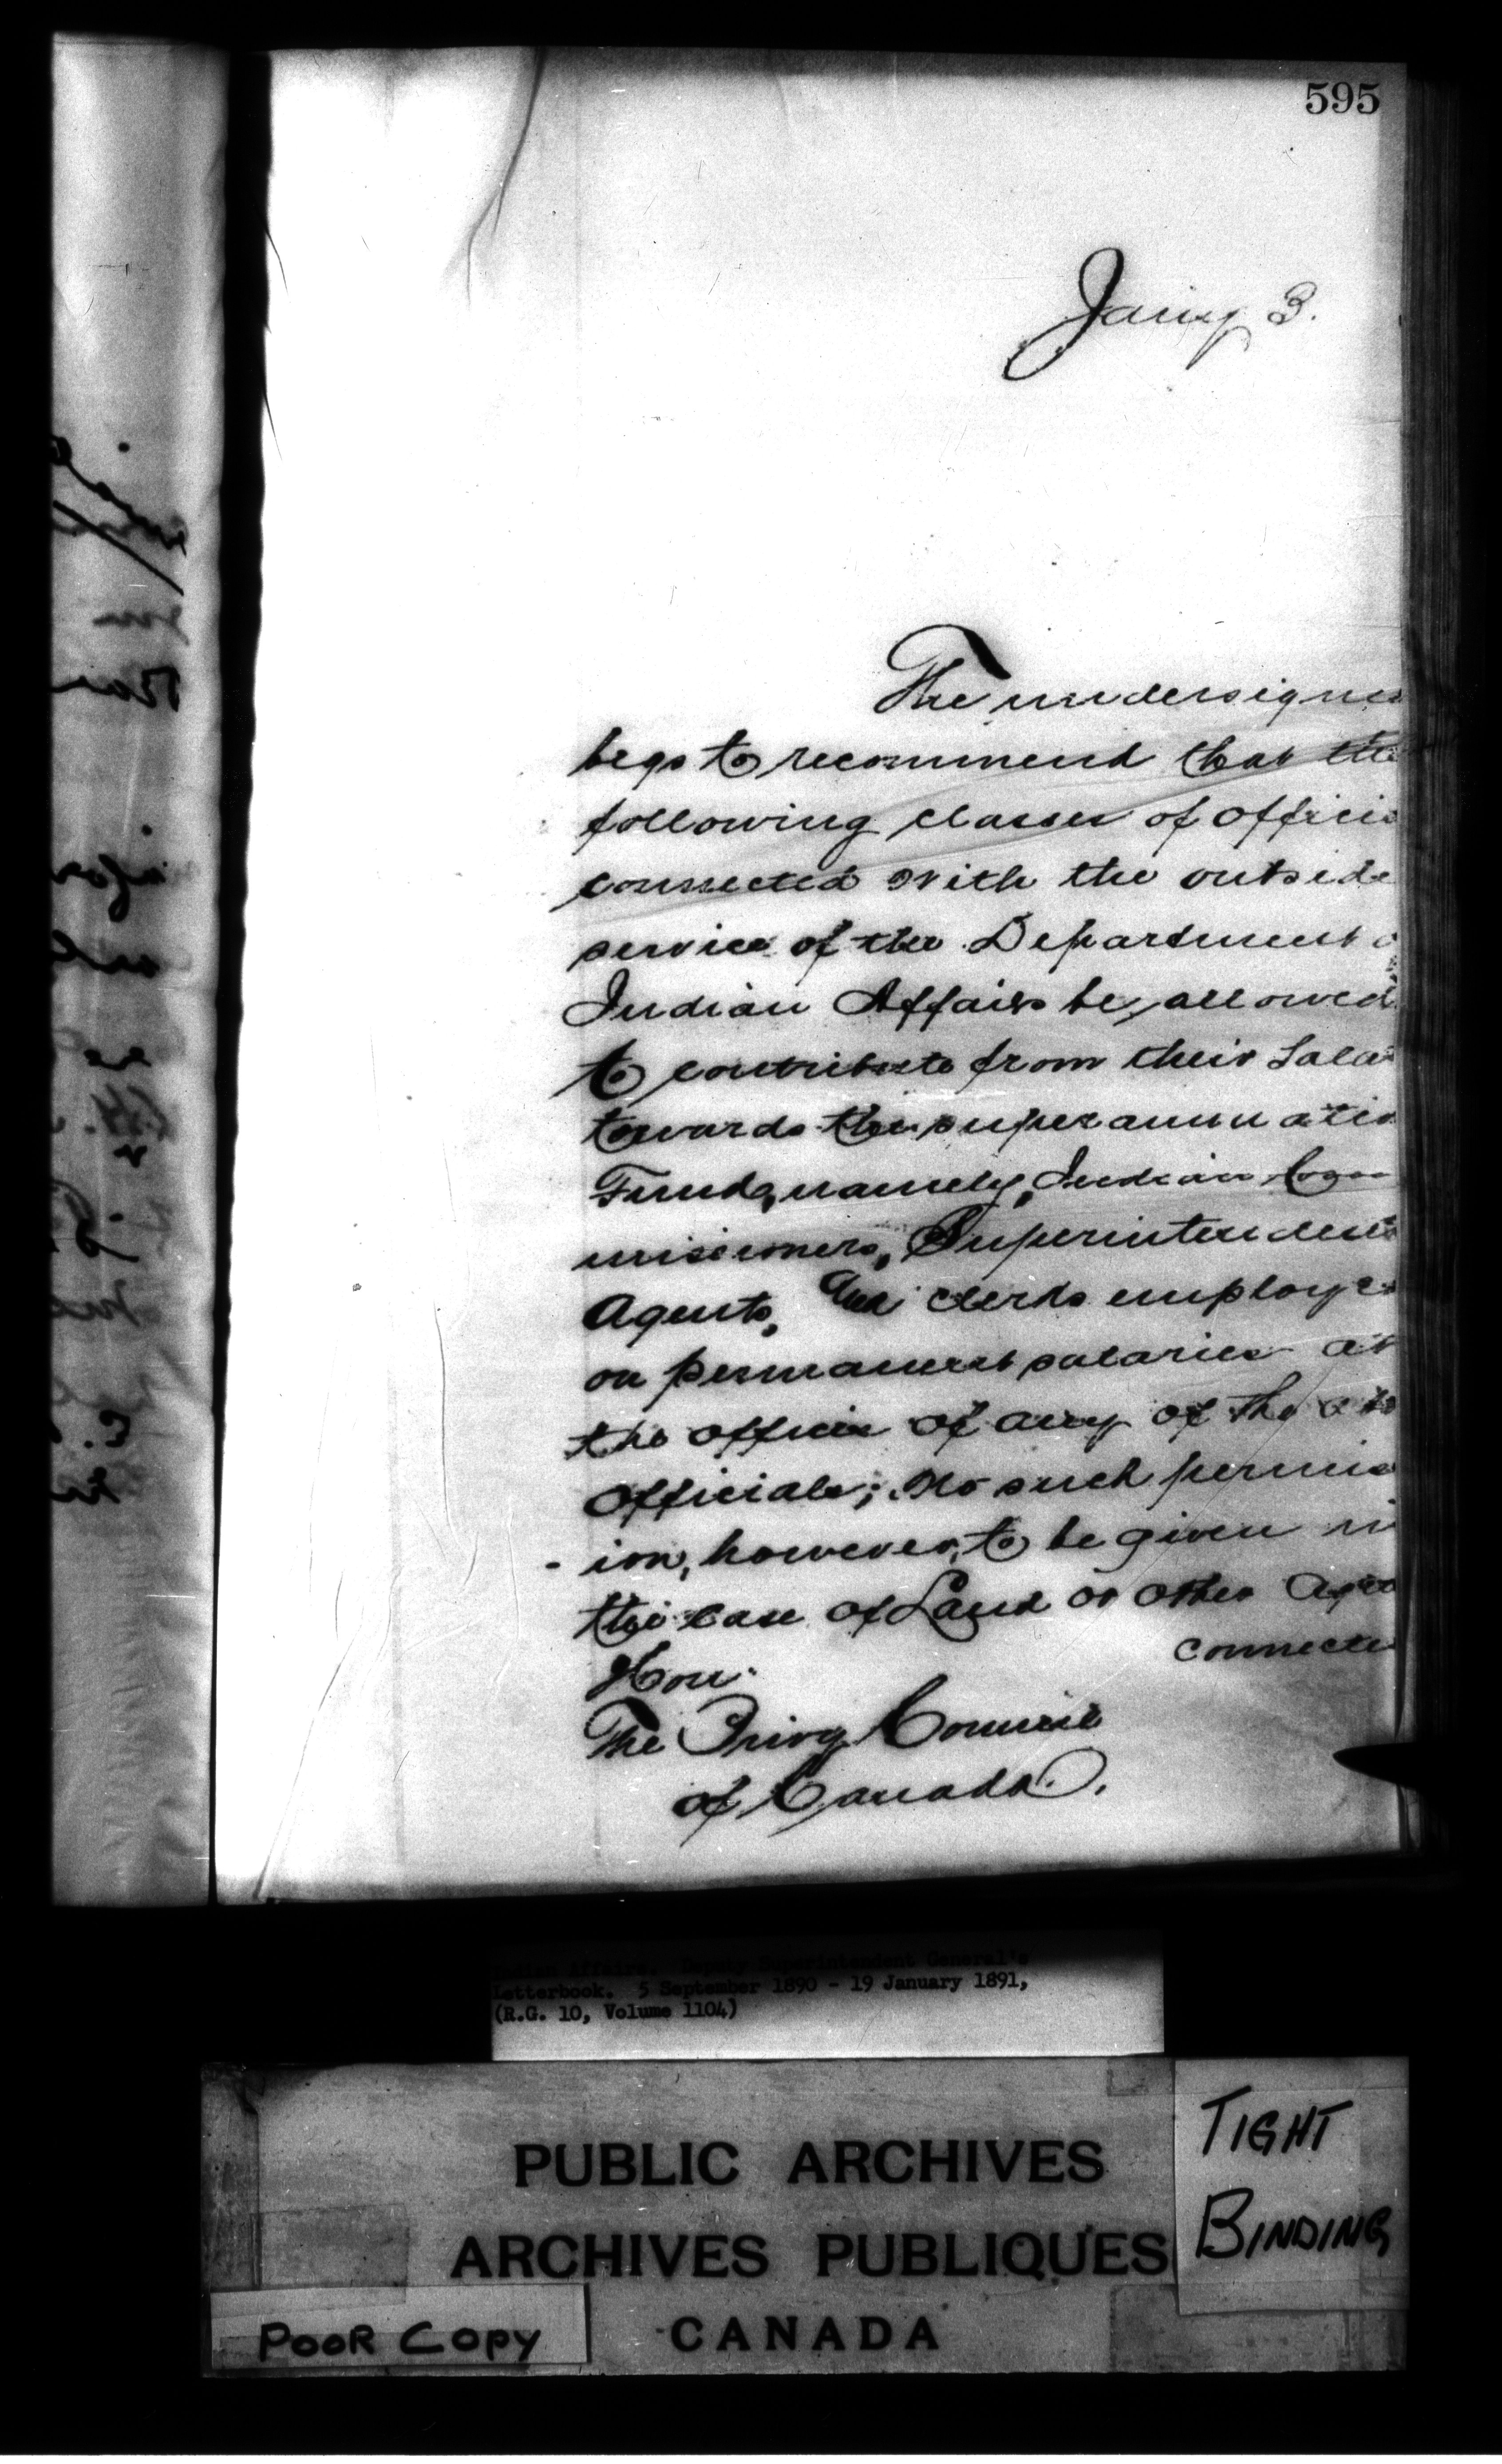 595
Jany 3.
The undersigne
begs to recommend that the
following classes of officia
connected with the outside
service of the Department o
Indian Affairs be allowed
to contribute from their Salar
towards the superannuatio
Fund, namely, Indian Com
missioners, Superintendents
Agents, clerks employed
on permanent salaries at
the office of any of the
Officials; No such permiss
- ion, however, to be given in
the case of Land or other Agen
connecte
Hon.
The Privy Council
of Canada.
Indian Affairs. Deputy Superintendent General's
Letterbook. 5 September 1890 - 19 January 1891,
(R.G. 10, Volume 1104)
PUBLIC ARCHIVES
ARCHIVES PUBLIQUES
CANADA
TIGHT
BINDING
POOR COPY